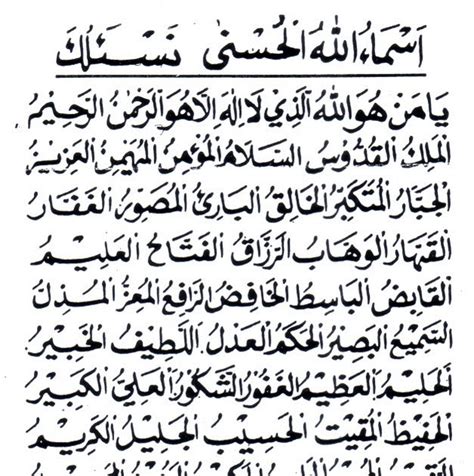 اَسْمَاءُ اللهُ الْحُسْنٰى نَسْـَٔلُكَ
يَامَنْ هُوَ اللهُ الَّذِي لَا اِلٰهَ اِلَّا هُوَ الرَّحْمٰنُ الرَّحِيْمُ
الْمَلِكُ الْقُدُّوْسُ السَّلَامُ الْمُؤْمِنُ الْمُهَيْمِنُ الْعَزِيْزُ
الْجَبَّارُ الْمُتَكَبِّرُ الْخَالِقُ الْبَارِئُ الْمُصَوِّرُ الْغَفَّارُ
الْقَهَّارُ الْوَهَّابُ الرَّزَّاقُ الْفَتَّاحُ الْعَلِيْمُ
الْقَابِضُ الْبَاسِطُ الْخَافِضُ الرَّافِعُ الْمُعِزُّ الْمُذِلُّ
السَّمِيْعُ الْبَصِيْرُ الْحَكَمُ الْعَدْلُ اللَّطِيْفُ الْخَبِيْرُ
الْحَلِيْمُ الْعَظِيْمُ الْغَفُوْرُ الشَّكُوْرُ الْعَلِيُّ الْكَبِيْرُ
الْحَفِيْظُ الْمُقِيْتُ الْحَسِيْبُ الْجَلِيْلُ الْكَرِيْمُ